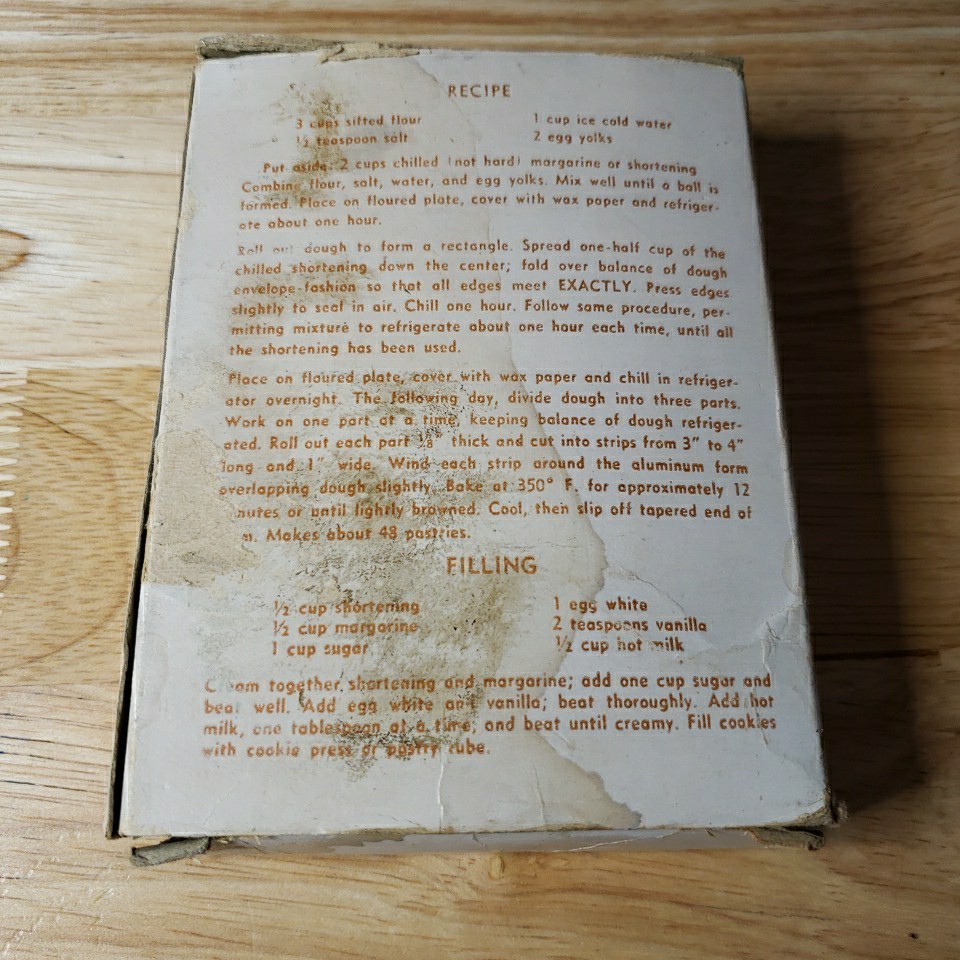 RECIPE
3 cups sifted flour 1 cup ice cold water
½ teaspoon salt 2 egg yolks
Put aside: 2 cups chilled (not hard) margarine or shortening
Combine flour, salt, water, and egg yolks. Mix well until a ball is
formed. Place on floured plate, cover with wax paper and refriger-
ate about one hour.
Roll out dough to form a rectangle. Spread one-half cup of the
chilled shortening down the center; fold over balance of dough
envelope-fashion so that all edges meet EXACTLY. Press edges
slightly to seal in air. Chill one hour. Follow same procedure, per-
mitting mixture to refrigerate about one hour each time, until all
the shortening has been used.
Place on floured plate, cover with wax paper and chill in refriger-
ator overnight. The following day, divide dough into three parts.
Work on one part at a time, keeping balance of dough refriger-
ated. Roll out each part ⅛" thick and cut into strips from 3" to 4"
long and 1" wide. Wind each strip around the aluminum form
overlapping dough slightly. Bake at 350° F. for approximately 12
nutes or until lightly browned. Cool, then slip off tapered end of
m. Makes about 48 pastries.
FILLING
½ cup shortening 1 egg white
½ cup margarine 2 teaspoons vanilla
1 cup sugar ½ cup hot milk
Cream together shortening and margarine; add one cup sugar and
beat well. Add egg white and vanilla; beat thoroughly. Add hot
milk, one tablespoon at a time, and beat until creamy. Fill cookies
with cookie press or pastry tube.